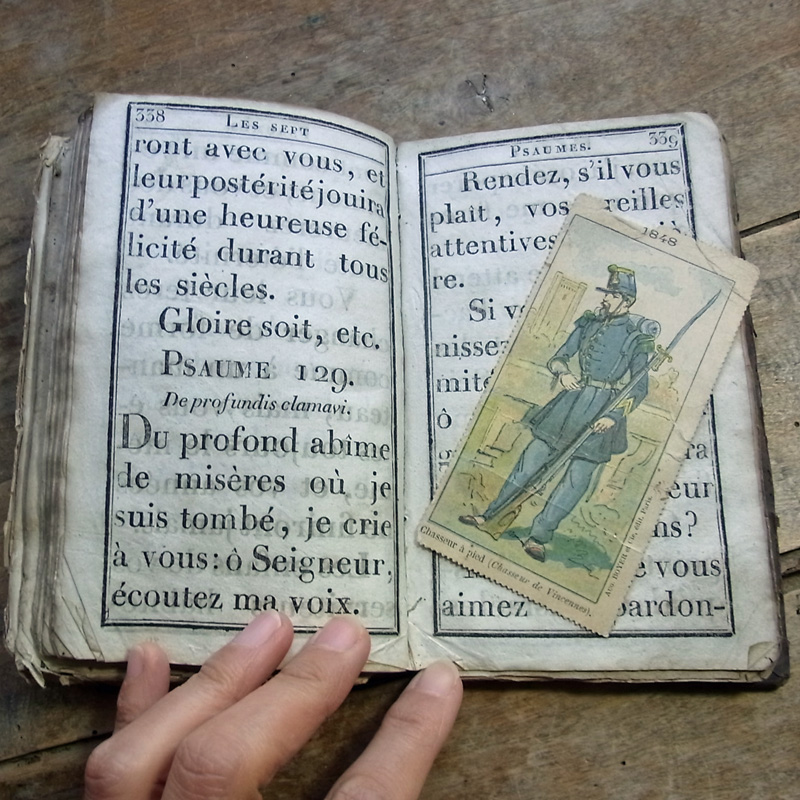 338
LES SEPT
ront avec vous, et
leur postérité jouira
d'une heureuse fé-
licité durant tous
les siècles.
Gloire soit, etc.
PSAUME 129.
De profundis clamavi.
Du profond abîme
de misères où je
suis tombé, je crie
à vous: ô Seigneur,
écoutez ma voix.
PSAUMES.
339
Rendez, s'il vous
plaît, vos reilles
attentives
re.
Si
nisse
mité
ô
ra
eur
ns?
vous
aimez pardon-
1848
Chasseur à pied (Chasseur de Vincennes).
Aug. BOYER et Cie, édit. Paris.